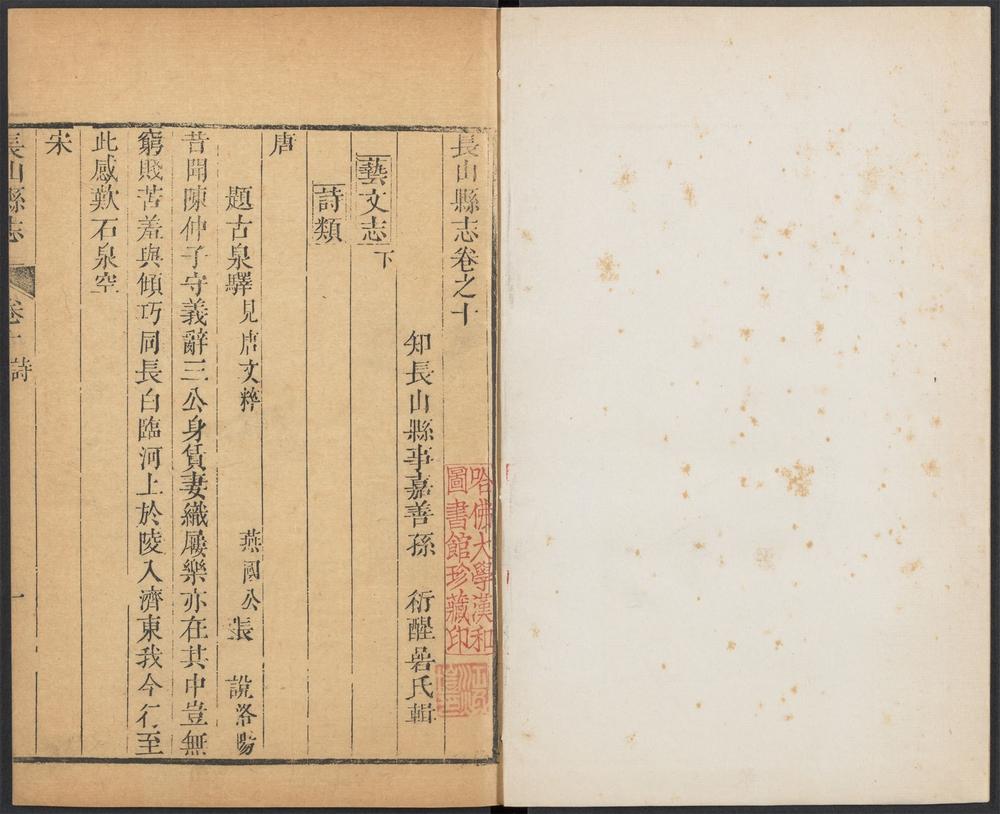 長山縣志卷之十
知長山縣事嘉善孫 衍醒喦氏輯
藝文志下
詩類
唐
題古泉驛見唐文粹 燕國公張 說洛陽
昔聞陳仲子守義辭三公身賃妻織屨樂亦在其中豈無
窮賤苦羞與傾巧同長白臨河上於陵入濟東我今行至
此感歎石泉空
宋
長山縣志 卷十 詩 一
哈佛大學漢和
圖書館珍藏印